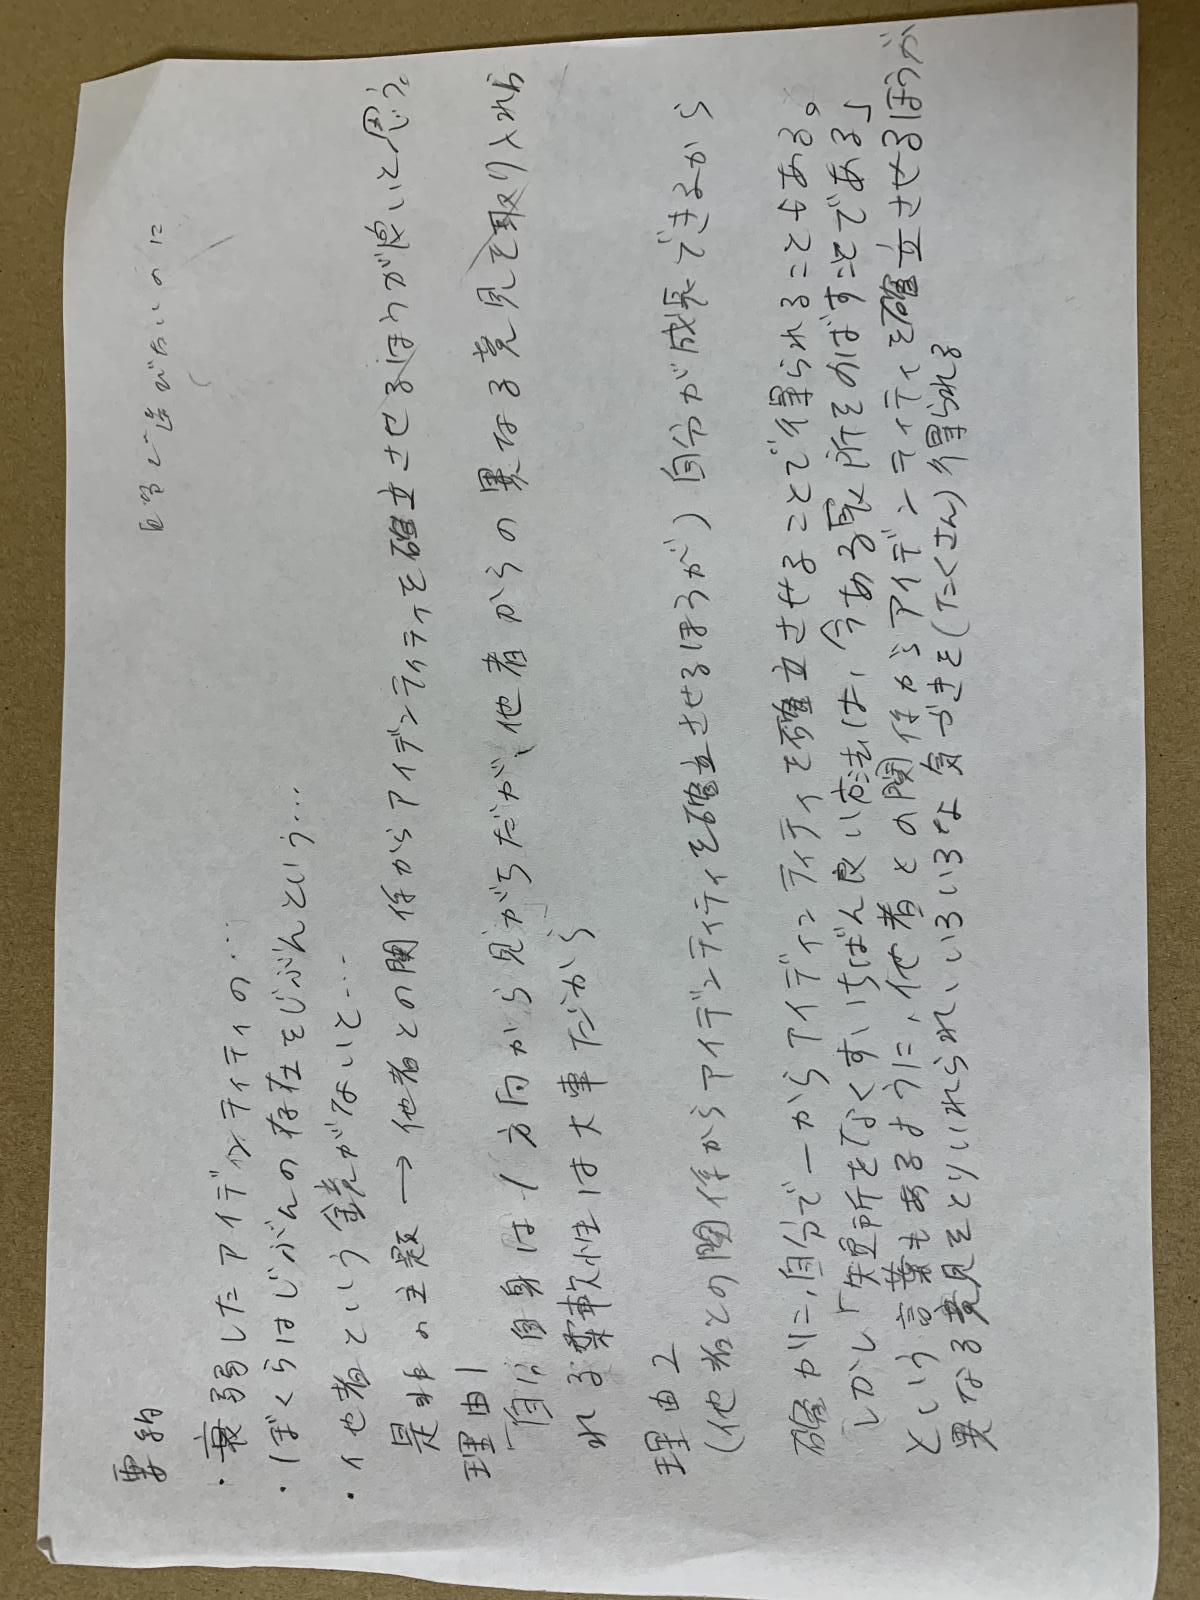 要約
・衰弱したアイディンティティの…
・ぼくらはじぶんの存在をじぶんという…
・他者という鏡がないと…
是非の主題→他者との関係からアイデンティティを確立させるほうが良いと思う。
理由1
「自分自身は1方向から見がちだが、他者からの異なる意見を取り入れら
れる柔軟性は大事だから
理由2
(他者との関係からアイデンティティを確立させるほうが)自分が成長できるから
確かに、自分で一からアイディンティティを確立させることで得られることもある。
しかし「短所をなくすいちばん良い方法は、今ある長所をのばすことである」
という言葉もあるように、他者との関係からアイデンティティを確立させるほうが
異なる意見をとりいれられ、いろいろな気づきを(たくさん)得られる